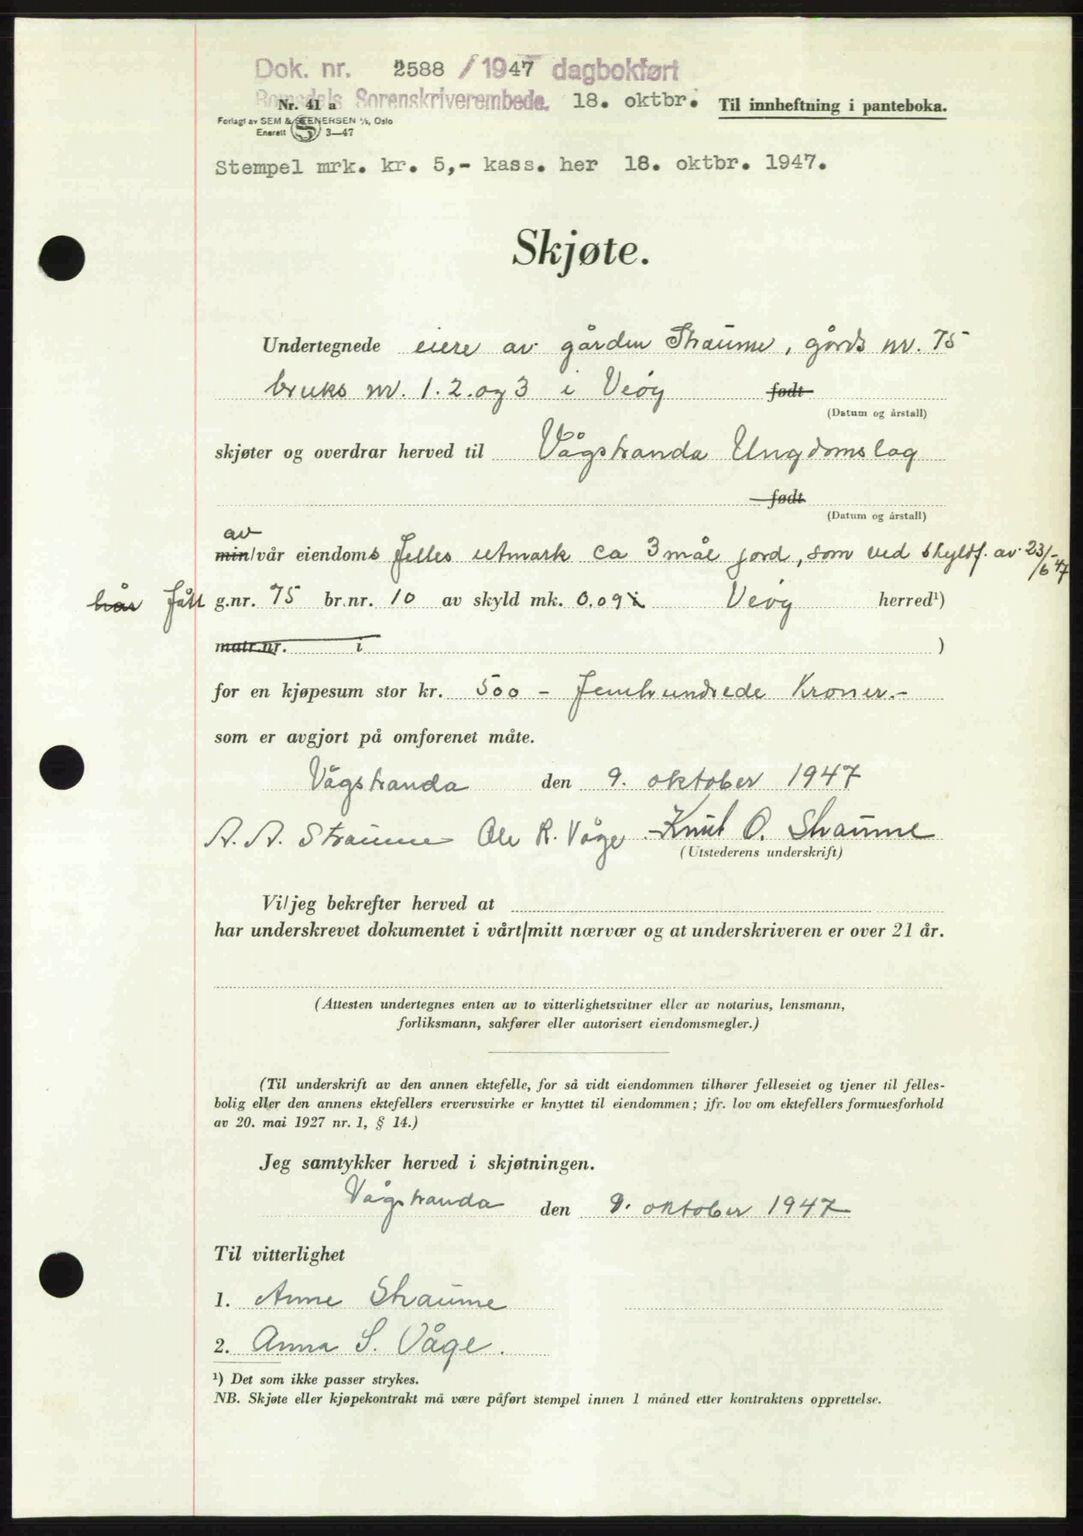 Dok. nr. 2588 / 1947 dagbokført
Romsdals Sorenskriverembede. 18. oktbr.
Nr. 41 a
Til innheftning i panteboka.
Forlagt av SEM & STENERSEN A/S, Oslo
Enerett S 3—47
Stempel mrk. kr. 5,- kass. her 18. oktbr. 1947.
Skjøte.
Undertegnede eiere av gården Straume, gårds nr. 75
bruks nr. 1. 2. og 3 i Veøy født
(Datum og årstall)
skjøter og overdrar herved til Vågstranda Ungdomslag
født
(Datum og årstall)
av
min/vår eiendoms felles utmark ca 3 mål jord, som ved skyldf. av 23/6-47
har fått g.nr. 75 br.nr. 10 av skyld mk. 0.09 i Veøy herred¹)
matr.nr. i )
for en kjøpesum stor kr. 500 - Femhundrede Kroner.-
som er avgjort på omforenet måte.
Vågstranda den 9. oktober 1947
A. A. Straume Ole R. Våge Knut O. Straume
(Utstederens underskrift)
Vi/jeg bekrefter herved at
har underskrevet dokumentet i vårt/mitt nærvær og at underskriveren er over 21 år.
(Attesten undertegnes enten av to vitterlighetsvitner eller av notarius, lensmann,
forliksmann, sakfører eller autorisert eiendomsmegler.)
(Til underskrift av den annen ektefelle, for så vidt eiendommen tilhører felleseiet og tjener til felles-
bolig eller den annens ektefellers ervervsvirke er knyttet til eiendommen; jfr. lov om ektefellers formuesforhold
av 20. mai 1927 nr. 1, § 14.)
Jeg samtykker herved i skjøtningen.
Vågstranda den 9. oktober 1947
Til vitterlighet
1. Anne Straume
2. Anna S. Våge.
¹) Det som ikke passer strykes.
NB. Skjøte eller kjøpekontrakt må være påført stempel innen 1 måned etter kontraktens opprettelse.